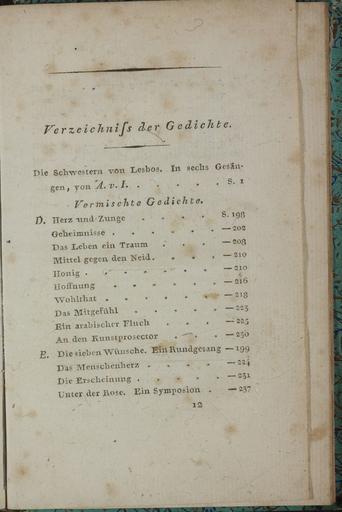 Verzeichniſs der Gedichte.
Die Schwestern von Lesbos. In sechs Gesän-
gen, von A. v. I. . . . . . S. 1
Vermischte Gedichte.
D. Herz und Zunge . . . . S. 198
Geheimnisse . . . . . . — 202
Das Leben ein Traum . . . — 208
Mittel gegen den Neid . . . . — 210
Honig . . . . . . . — 210
Hoffnung . . . . . . — 216
Wohlthat . . . . . . — 218
Das Mitgefühl . . . . . — 225
Ein arabischer Fluch . . . . — 225
An den Kunstprosector . . . — 250
E. Die sieben Wünsche. Ein Rundgesang — 199
Das Menschenherz . . . . . — 224
Die Erscheinung . . . . . — 231
Unter der Rose. Ein Symposion . — 237
12